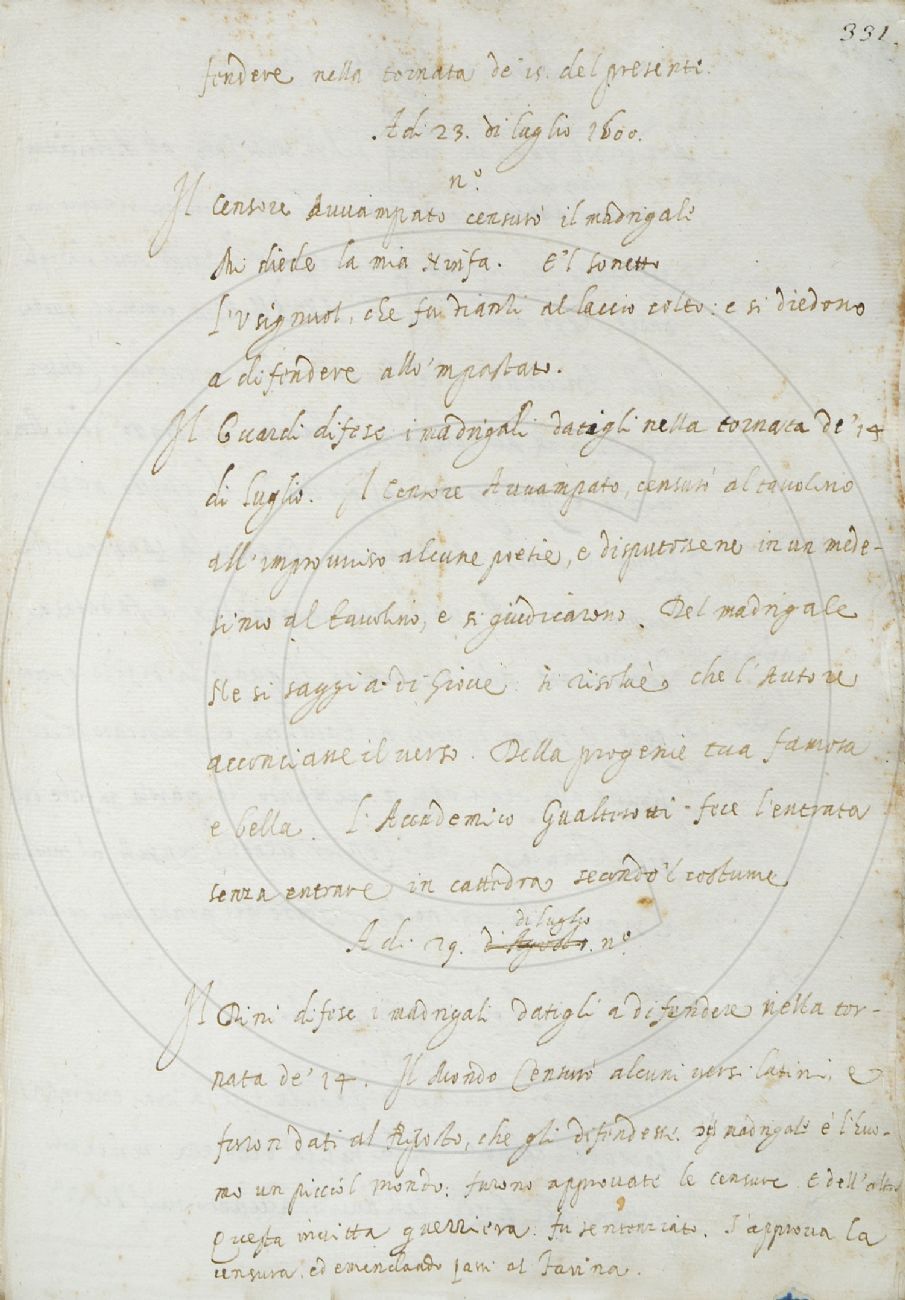 331.
fendere nella tornata de' 15. del presente.
Adi 23. di luglio 1600.
n.º
Il Censore Avvampato censurò il madrigale
Mi diede la mia Ninfa. E'l sonetto
L'Usignuol, che fu dianzi al laccio colto: e si diedono
a difendere allo 'mpastato.
Il Guardi difese i madrigali datigli nella tornata de' 14
di luglio. Il Censore Avvampato, censurò al tavolino
all'improvviso alcune poesie, e disputossene in un mede-
simo al tavolino, e si giudicarono. Del madrigale
Ne si saggia di Giove si risolvè, che l'Autore
acconciasse il verso. Della progenie tua famosa
e bella. L'Accademico Gualterotti fece l'entrata
senza entrare in cattedra secondo 'l costume
di luglio
Adi 29. d'Agosto. n.º
Il Dini difese i madrigali datigli a difendere nella tor-
nata de' 14. Il Mondo Censurò alcuni versi latini, e
furon dati al Riposto, che gli difendesse. madrigale è l'huo-
mo un picciol mondo: furono approvate le censure. E dell'altro
Questa invitta guerriera. fu sentenziato. S'approva la
censura, ed emendando al Farina.